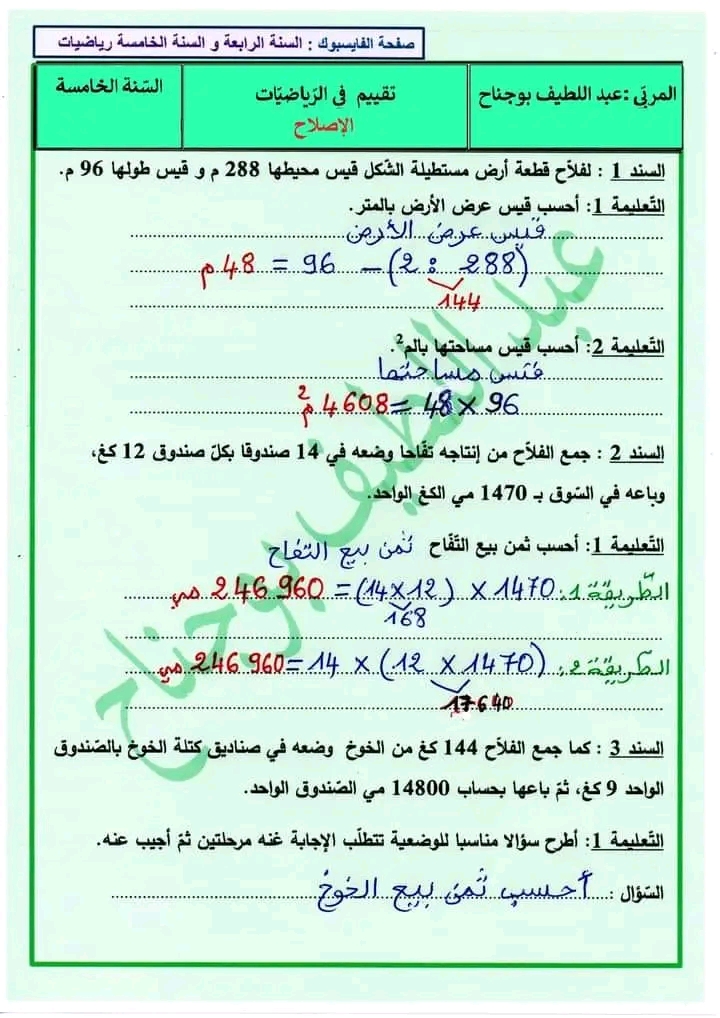 صفحة الفايسبوك : السنة الرابعة و السنة الخامسة رياضيات
المربّي :عبد اللطيف بوجناح
تقييم في الرّياضيّات
الإصلاح
السّنة الخامسة
السند 1 : لفلاّح قطعة أرض مستطيلة الشّكل قيس محيطها 288 م و قيس طولها 96 م.
التّعليمة 1: أحسب قيس عرض الأرض بالمتر.
قيس عرض الأرض
(288 : 2) – 96 = 48 م
144
التّعليمة 2: أحسب قيس مساحتها بالم².
قيس مساحتها
96 × 48 = 4608 م²
السند 2 : جمع الفلاّح من إنتاجه تفّاحا وضعه في 14 صندوقا بكلّ صندوق 12 كغ،
وباعه في السّوق بـ 1470 مي الكغ الواحد.
التّعليمة 1: أحسب ثمن بيع التّفّاح
ثمن بيع التفاح
الطّريقة 1: 1470 × (12×14) = 246 960 مي
168
الطّريقة 2: (1470 × 12) × 14 = 246 960 مي
17640
السند 3 : كما جمع الفلاّح 144 كغ من الخوخ وضعه في صناديق كتلة الخوخ بالصّندوق
الواحد 9 كغ، ثمّ باعها بحساب 14800 مي الصّندوق الواحد.
التّعليمة 1: أطرح سؤالا مناسبا للوضعية تتطلّب الإجابة عنه مرحلتين ثمّ أجيب عنه.
السّؤال : أحسب ثمن بيع الخوخ
عبد اللطيف بوجناح